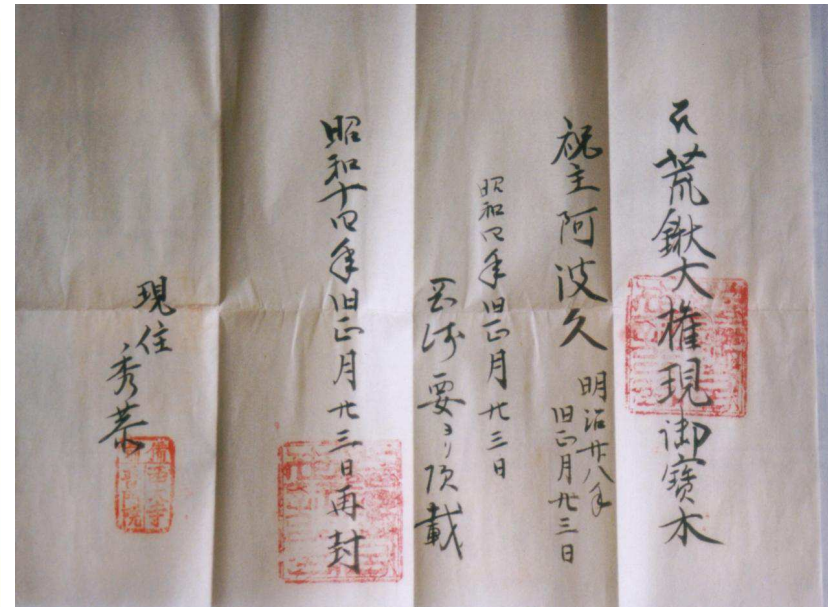 荒鍬大権現御寶木
祝主阿波久
明治廿八年
旧正月廿三日
昭和四年旧正月廿三日
要ヨリ頂載
昭和十四年旧正月廿三日再封
現住
秀恭